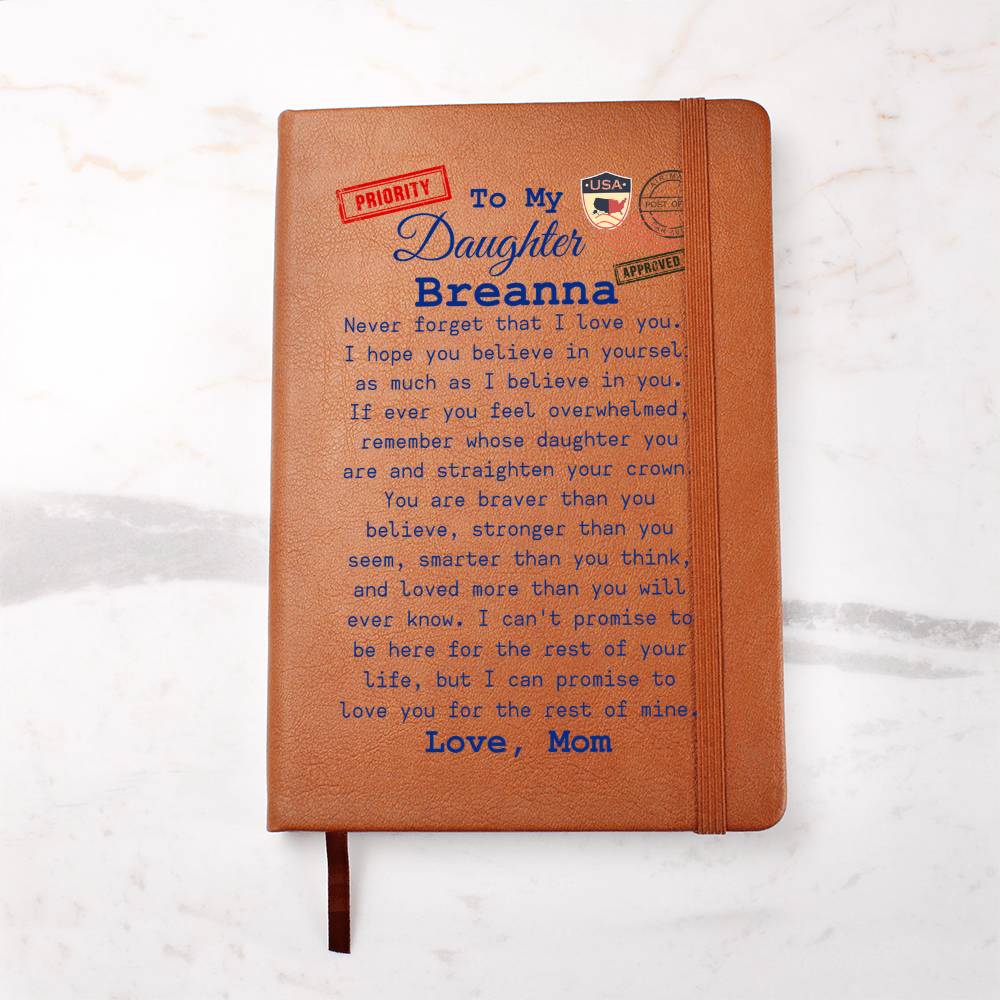 PRIORITY
To My
USA
AIR MA
POST OF
Daughter
APPROVED
Breanna
Never forget that I love you.
I hope you believe in yourself
as much as I believe in you.
If ever you feel overwhelmed,
remember whose daughter you
are and straighten your crown.
You are braver than you
believe, stronger than you
seem, smarter than you think,
and loved more than you will
ever know. I can't promise to
be here for the rest of your
life, but I can promise to
love you for the rest of mine.
Love, Mom